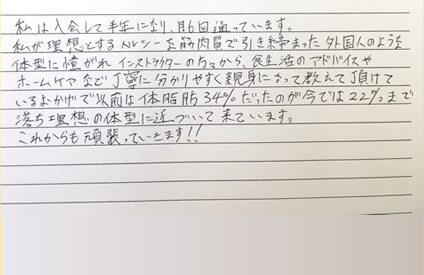 私は入会して半年になり、月6回通っています。
私が理想とするヘルシーな筋肉質で引き締まった外国人のような
体型に憧れ インストラクターの方々から、食生活のアドバイスや
ホームケアなど丁寧に分かりやすく親身になって教えて頂けて
いるおかげで以前は体脂肪34%だったのが今では22%まで
落ち理想の体型に近づいて来ています。
これからも頑張っていきます!!